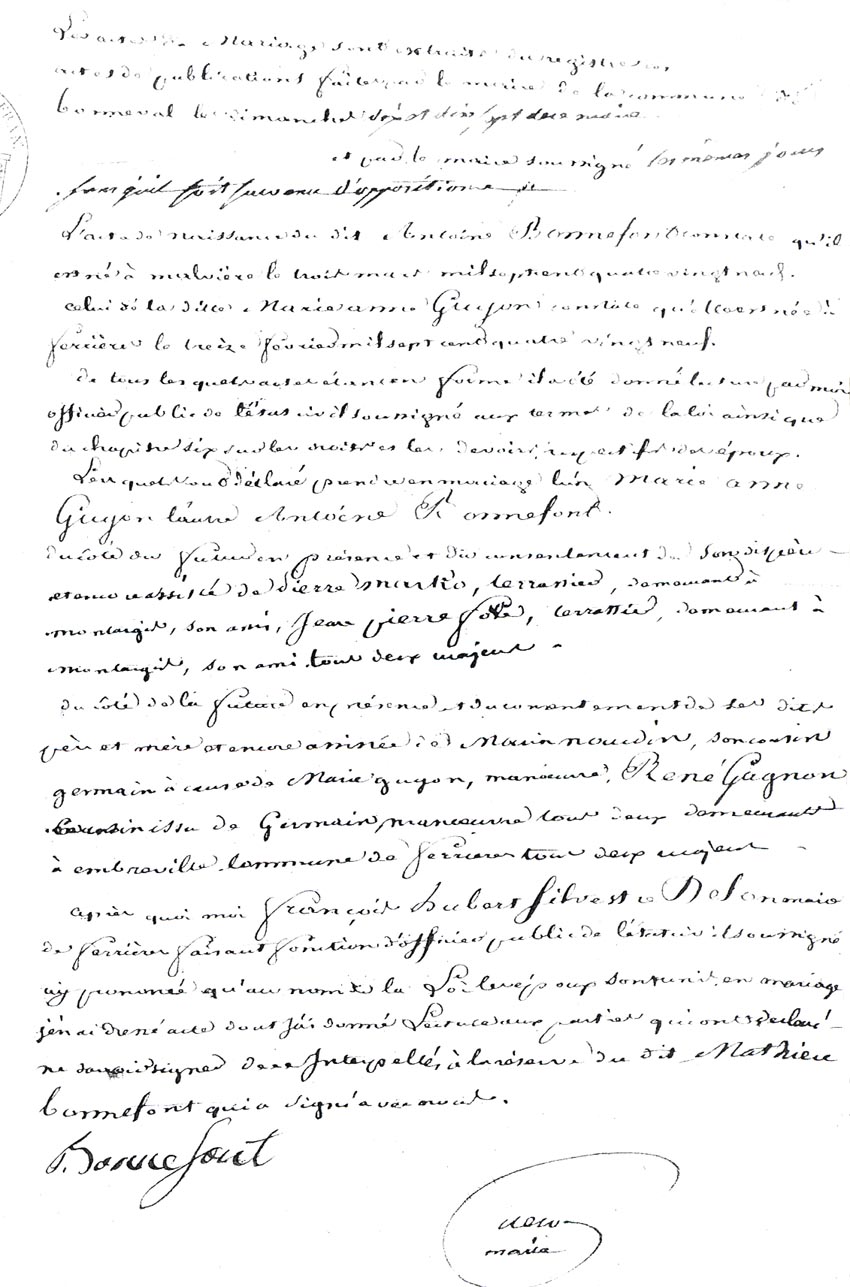 Les actes de Mariage sont extraits du registre des
actes de publications faites par le maire de la commune de
bonneval les dimanches dix et dix sept decembre
et par le maire soussigné les mêmes jours
sans qu'il soit survenu d'opposition
L'acte de naissance du dit Antoine Bonnefont constate qu'il
est né à malvière le trois mars mil sept cent quatre vingt neuf.
celui de la ditte Marie anne Guyon constate qu'elle est née à
ferrières le treize fevrier mil sept cent quatre vingt neuf.
de tous lesquels actes étant en forme il a été donné lecture par moi
officier public de l'état civil soussigné aux termes de la loi ainsi que
du chapitre six sur les droits et les devoirs respectifs des époux.
Lesquels ont déclaré prendre en mariage l'un Marie anne
Guyon l'autre Antoine Bonnefont.
du côté du futur en présence et du consentement de son dit père
et encore assisté de Pierre terrassier, demeurant à
montargis, son ami, Jean pierre terrassier, demeurant à
montargis, son ami tout deux majeurs
du côté de la future en présence et du consentement de ses dits
père et mère et encore assistée de naudin, son cousin
germain à cause de Marie guyon, manœuvre, René Gagnon
cousin issu de Germain, manœuvre tout deux demeurant
à embreville commune de ferrieres tout deux majeurs
après quoi moi françois hubert Silvestre maire
de ferrières faisant fonction d'officier public de l'état civil soussigné
ay prononcé qu'au nom de la Loi les époux sont unis en mariage
j'en ai dréné acte dont j'ai donné Lecture aux parties qui ont déclaré
ne savoir signer de ce Interpellés à la réserve du dit Mathieu
bonnefont qui a signé avec nous.
Bonnefont
maire